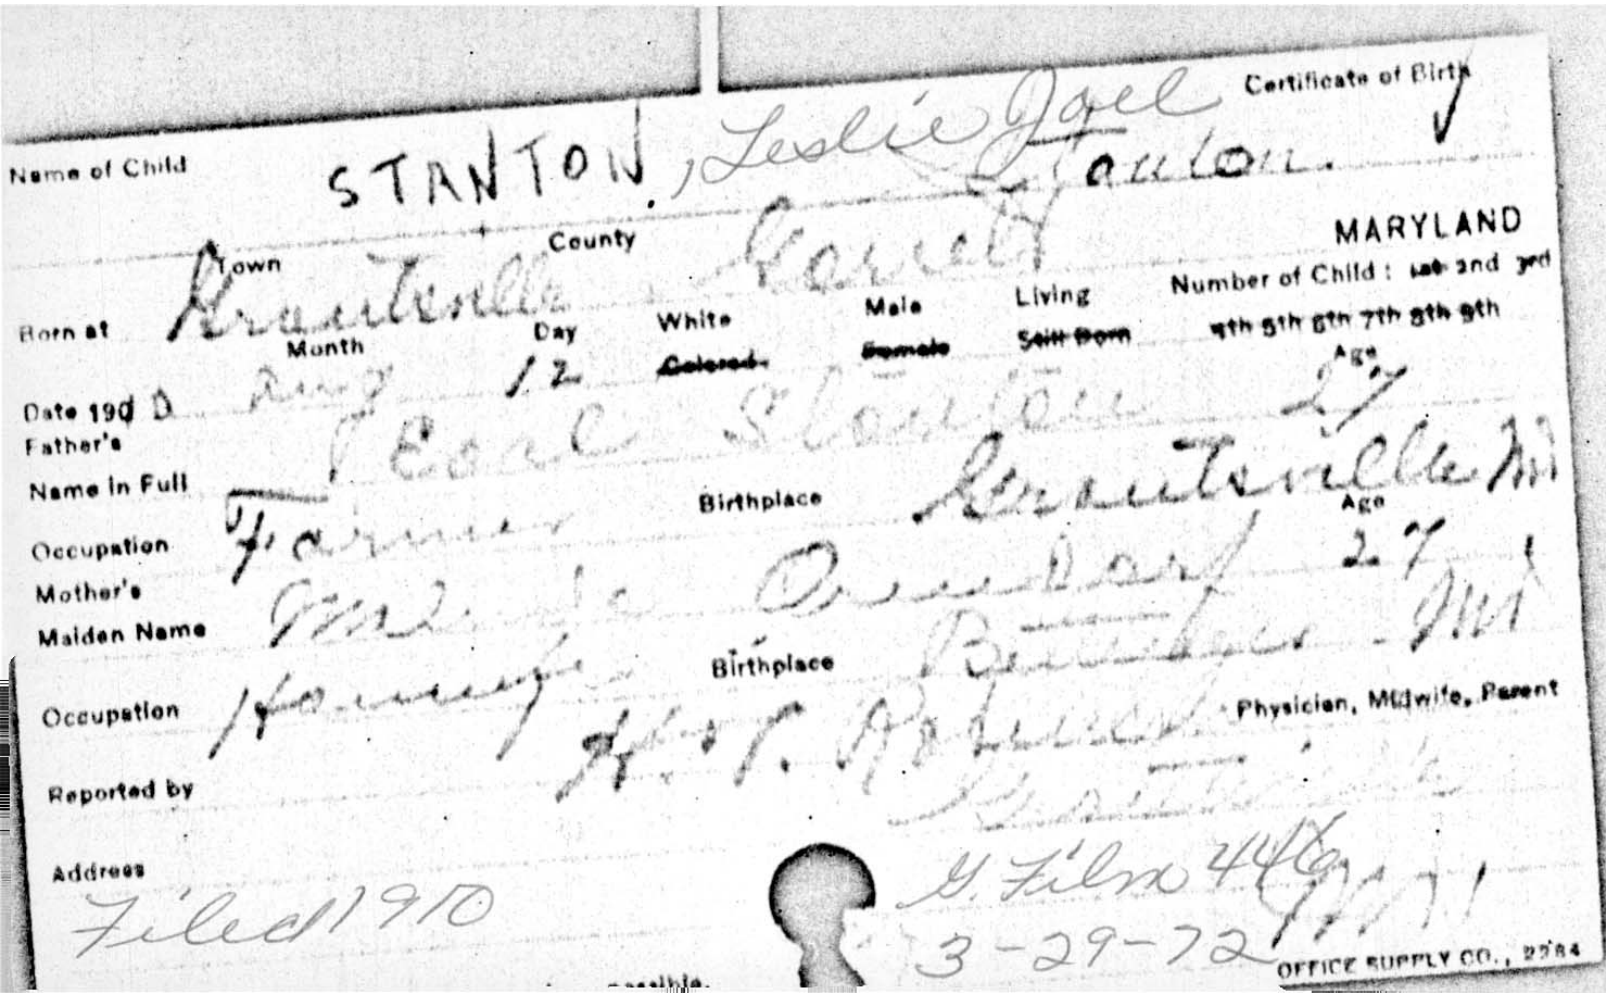 Certificate of Birth
Name of Child STANTON, Leslie Joel
Stanton.
MARYLAND
Town County
Born at Grantsville Garrett
Number of Child: 1st 2nd 3rd
4th 5th 6th 7th 8th 9th
Month Day White Male Living
Colored Female Still Born
Date 190 Aug 12
Father's Age
Name in Full Pearl Stanton 27
Occupation Farmer Birthplace Grantsville Md
Mother's Age
Maiden Name Orendorf 27
Occupation Housewife Birthplace Md
Reported by H. Physician, Midwife, Parent
Address Grantsville
Md
Filed 1910 G. Film 446
3-29-72
OFFICE SUPPLY CO., 2284
possible.